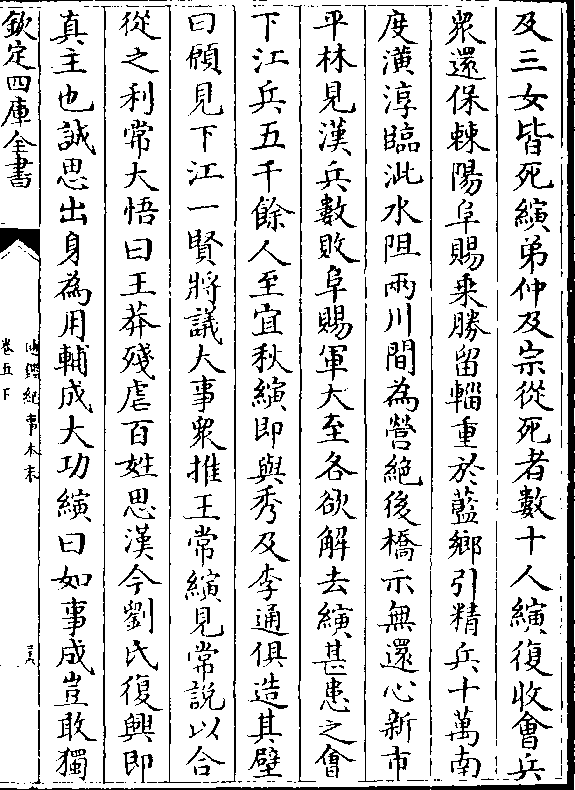 及三女皆死縯弟仲及宗從死者數十人縯復收會兵
衆還保棘陽阜賜乗勝留輜重於藍鄉引精兵十萬南
度潢淳臨沘水阻兩川間為營絶後橋示無還心新市
平林見漢兵數敗阜賜軍大至各欲解去縯甚患之會
下江兵五千餘人至宜秋縯即與秀及李通俱造其壁
曰願見下江一賢將議大事衆推王常縯見常說以合
從之利常大悟曰王莽殘虐百姓思漢今劉氏復興即
真主也誠思出身為用輔成大功縯曰如事成豈敢獨
欽定四庫全書
通鑑紀事本末
卷五下